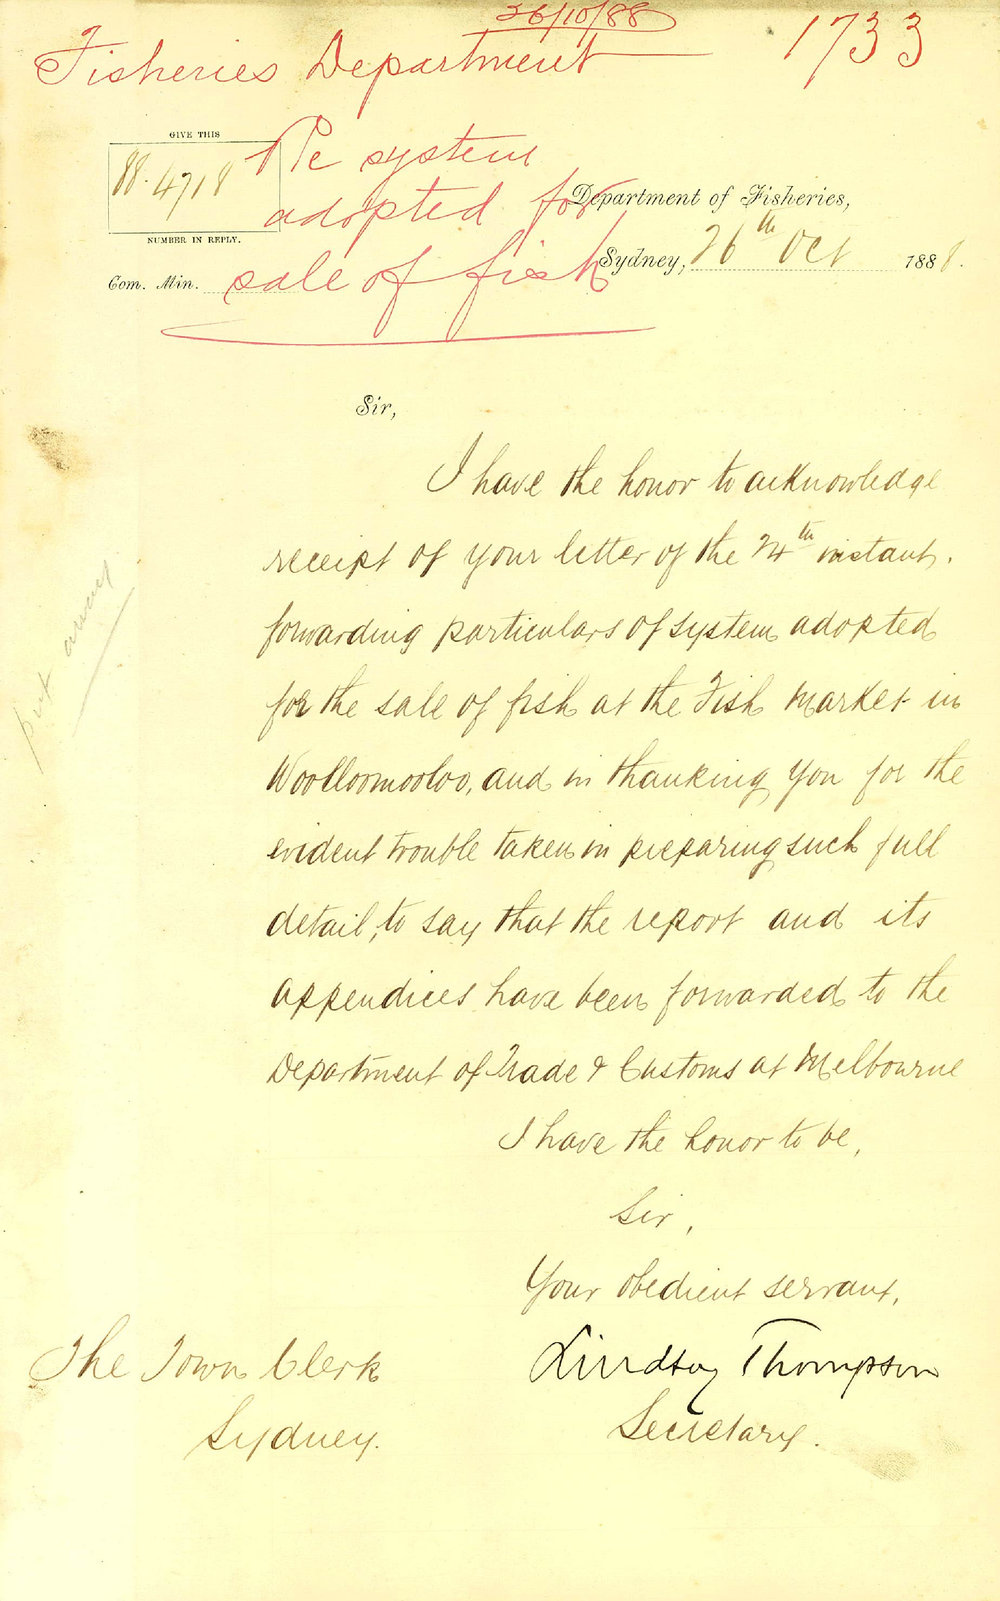 26/10/88
Fisheries Department
1733
GIVE THIS
88.4718
NUMBER IN REPLY.
Com. Min.
Re system
adopted for
sale of fish
Department of Fisheries,
Sydney, 26th Oct 1888.
Sir,
I have the honor to acknowledge
receipt of your letter of the 24th instant.
forwarding particulars of system adopted
for the sale of fish at the Fish Market in
Woolloomooloo, and in thanking you for the
evident trouble taken in preparing such full
detail, to say that the report and its
appendices have been forwarded to the
Department of Trade & Customs at Melbourne
I have the honor to be,
Sir,
Your obedient servant,
Lindsay Thompson
Secretary.
The Town Clerk
Sydney.
put away